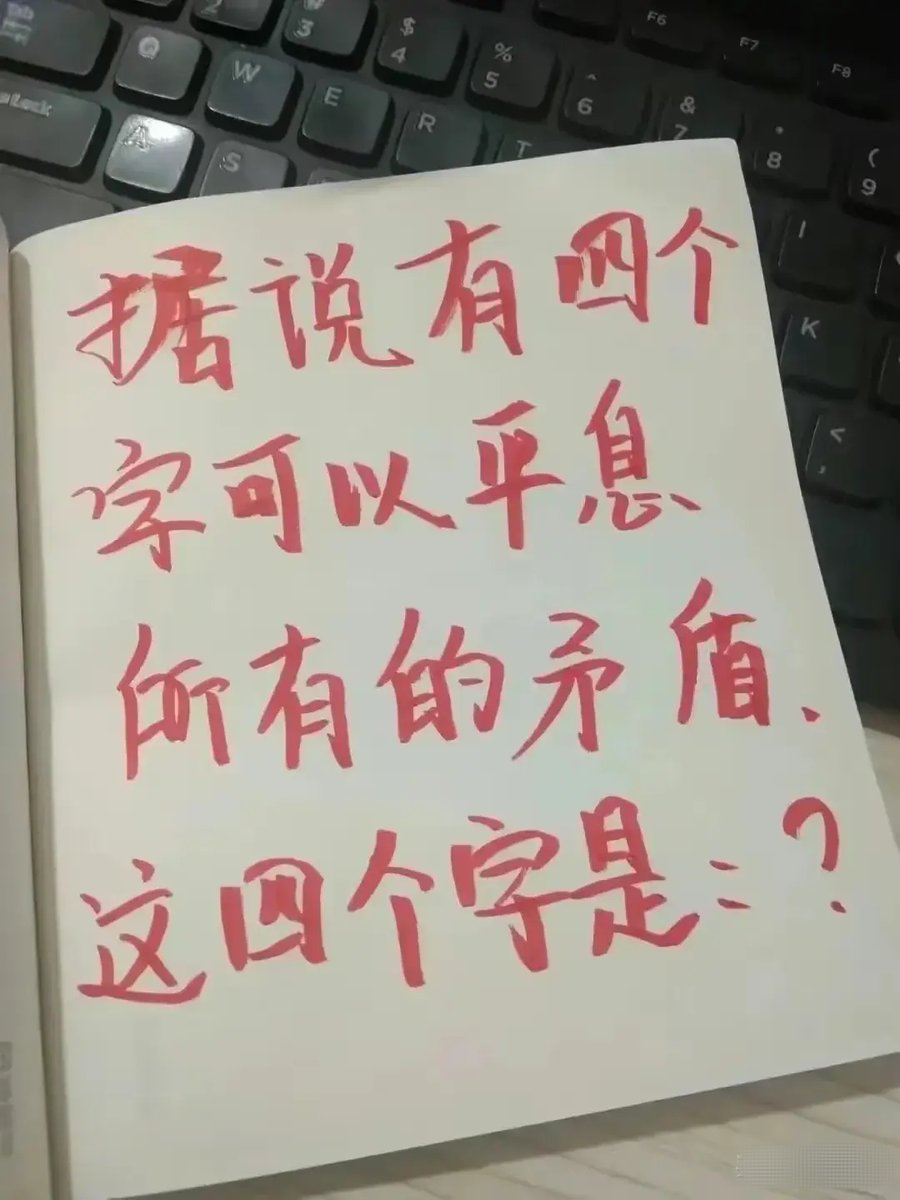 据说有四个
字可以平息
所有的矛盾.
这四个字是:?
Q
W
E
R
T
A
S
$
4
3
%
5
^
6
&
7
*
8
(
9
F6
F7
F8
I
K
<
,